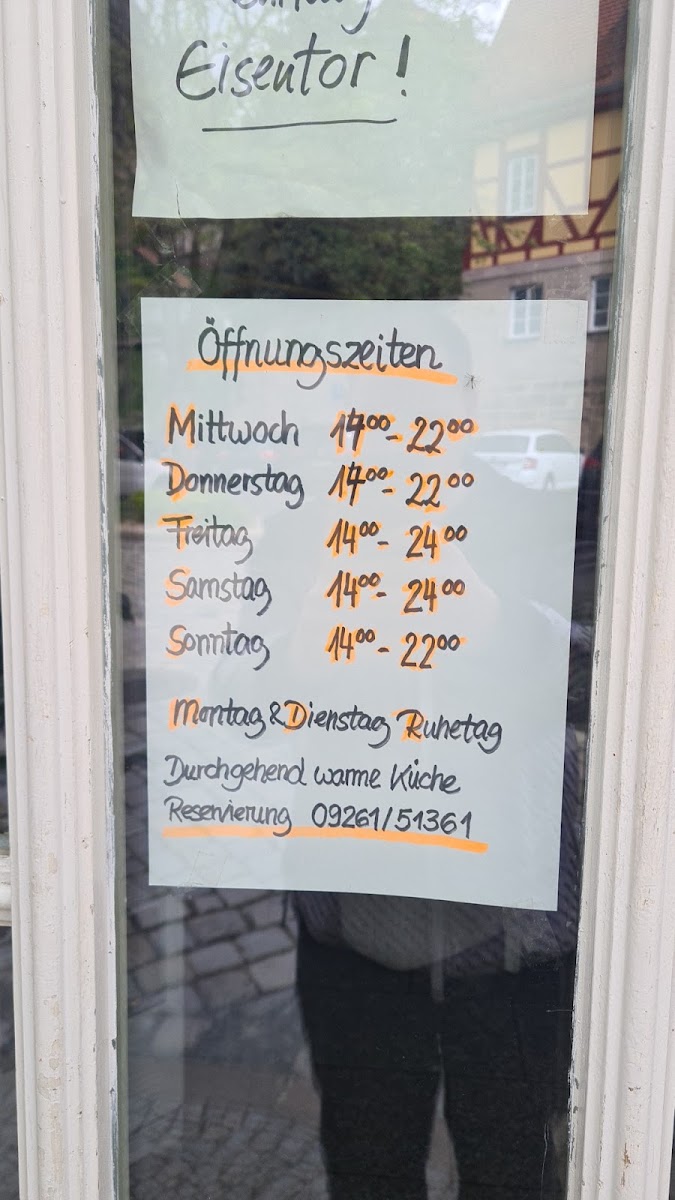 Eisentor!
Öffnungszeiten
Mittwoch 17⁰⁰- 22⁰⁰
Donnerstag 17⁰⁰- 22⁰⁰
Freitag 14⁰⁰- 24⁰⁰
Samstag 14⁰⁰- 24⁰⁰
Sonntag 14⁰⁰- 22⁰⁰
Montag & Dienstag Ruhetag
Durchgehend warme Küche
Reservierung 09261/51361